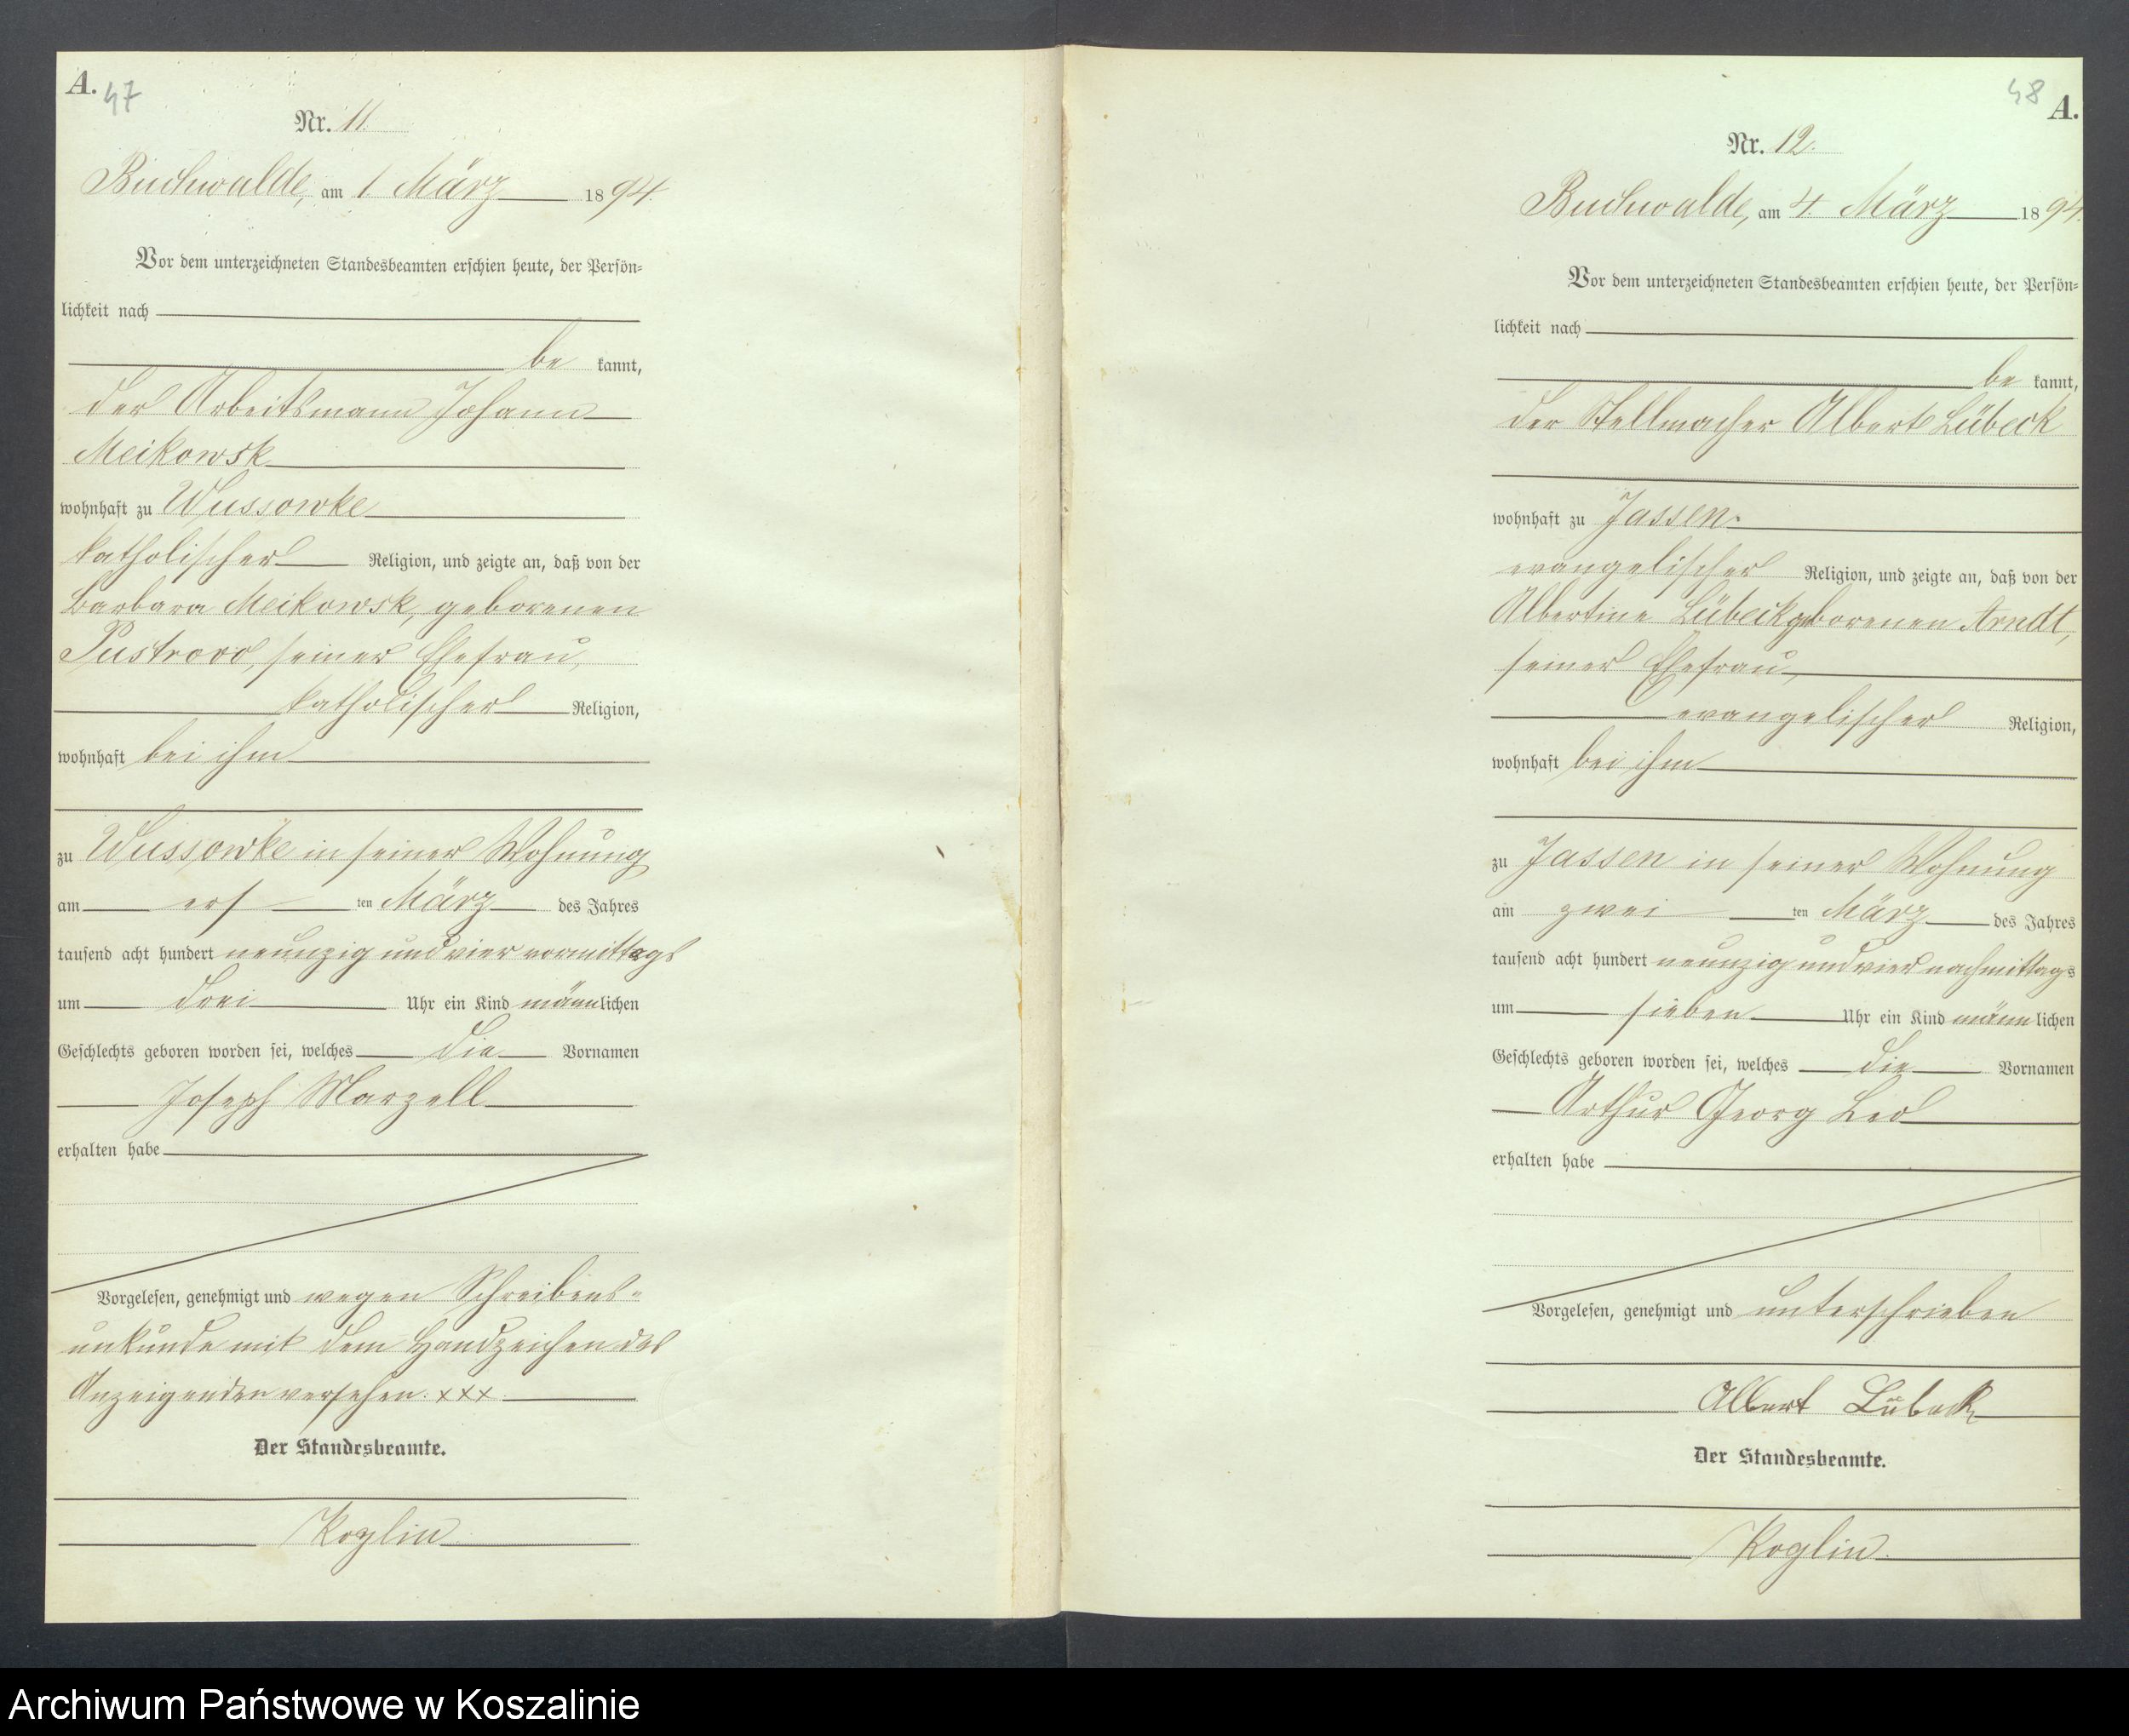 A. 47
Nr. 11.
Buchwalde, am 1. März 1894.
Vor dem unterzeichneten Standesbeamten erschien heute, der Persön-
lichkeit nach
be kannt,
der Arbeitsmann Johann
Meikowsk
wohnhaft zu Wussowke
katholischer Religion, und zeigte an, daß von der
Barbara Meikowsk, geborenen
seiner Ehefrau,
katholischer Religion,
wohnhaft bei ihm
zu Wussowke in seiner Wohnung
am ers ten März des Jahres
tausend acht hundert neunzig und vier vormittags
um drei Uhr ein Kind männlichen
Geschlechts geboren worden sei, welches die Vornamen
Joseph Marzell
erhalten habe
Vorgelesen, genehmigt und wegen Schreibens-
unkunde mit dem Handzeichen des
Anzeigenden versehen. xxx.
Der Standesbeamte.
Koglin
48 A.
Nr. 12.
Buchwalde, am 4. März 1894.
Vor dem unterzeichneten Standesbeamten erschien heute, der Persön-
lichkeit nach
be kannt,
der Stellmacher Albert Lübeck
wohnhaft zu Jassen
evangelischer Religion, und zeigte an, daß von der
Albertine Lübeck geborenen Arndt,
seiner Ehefrau,
evangelischer Religion,
wohnhaft bei ihm
zu Jassen in seiner Wohnung
am zwei ten März des Jahres
tausend acht hundert neunzig und vier nachmittags
um sieben Uhr ein Kind männlichen
Geschlechts geboren worden sei, welches die Vornamen
Arthur Georg Leo
erhalten habe
Vorgelesen, genehmigt und unterschrieben
Albert Lübeck
Der Standesbeamte.
Koglin.
Archiwum Państwowe w Koszalinie